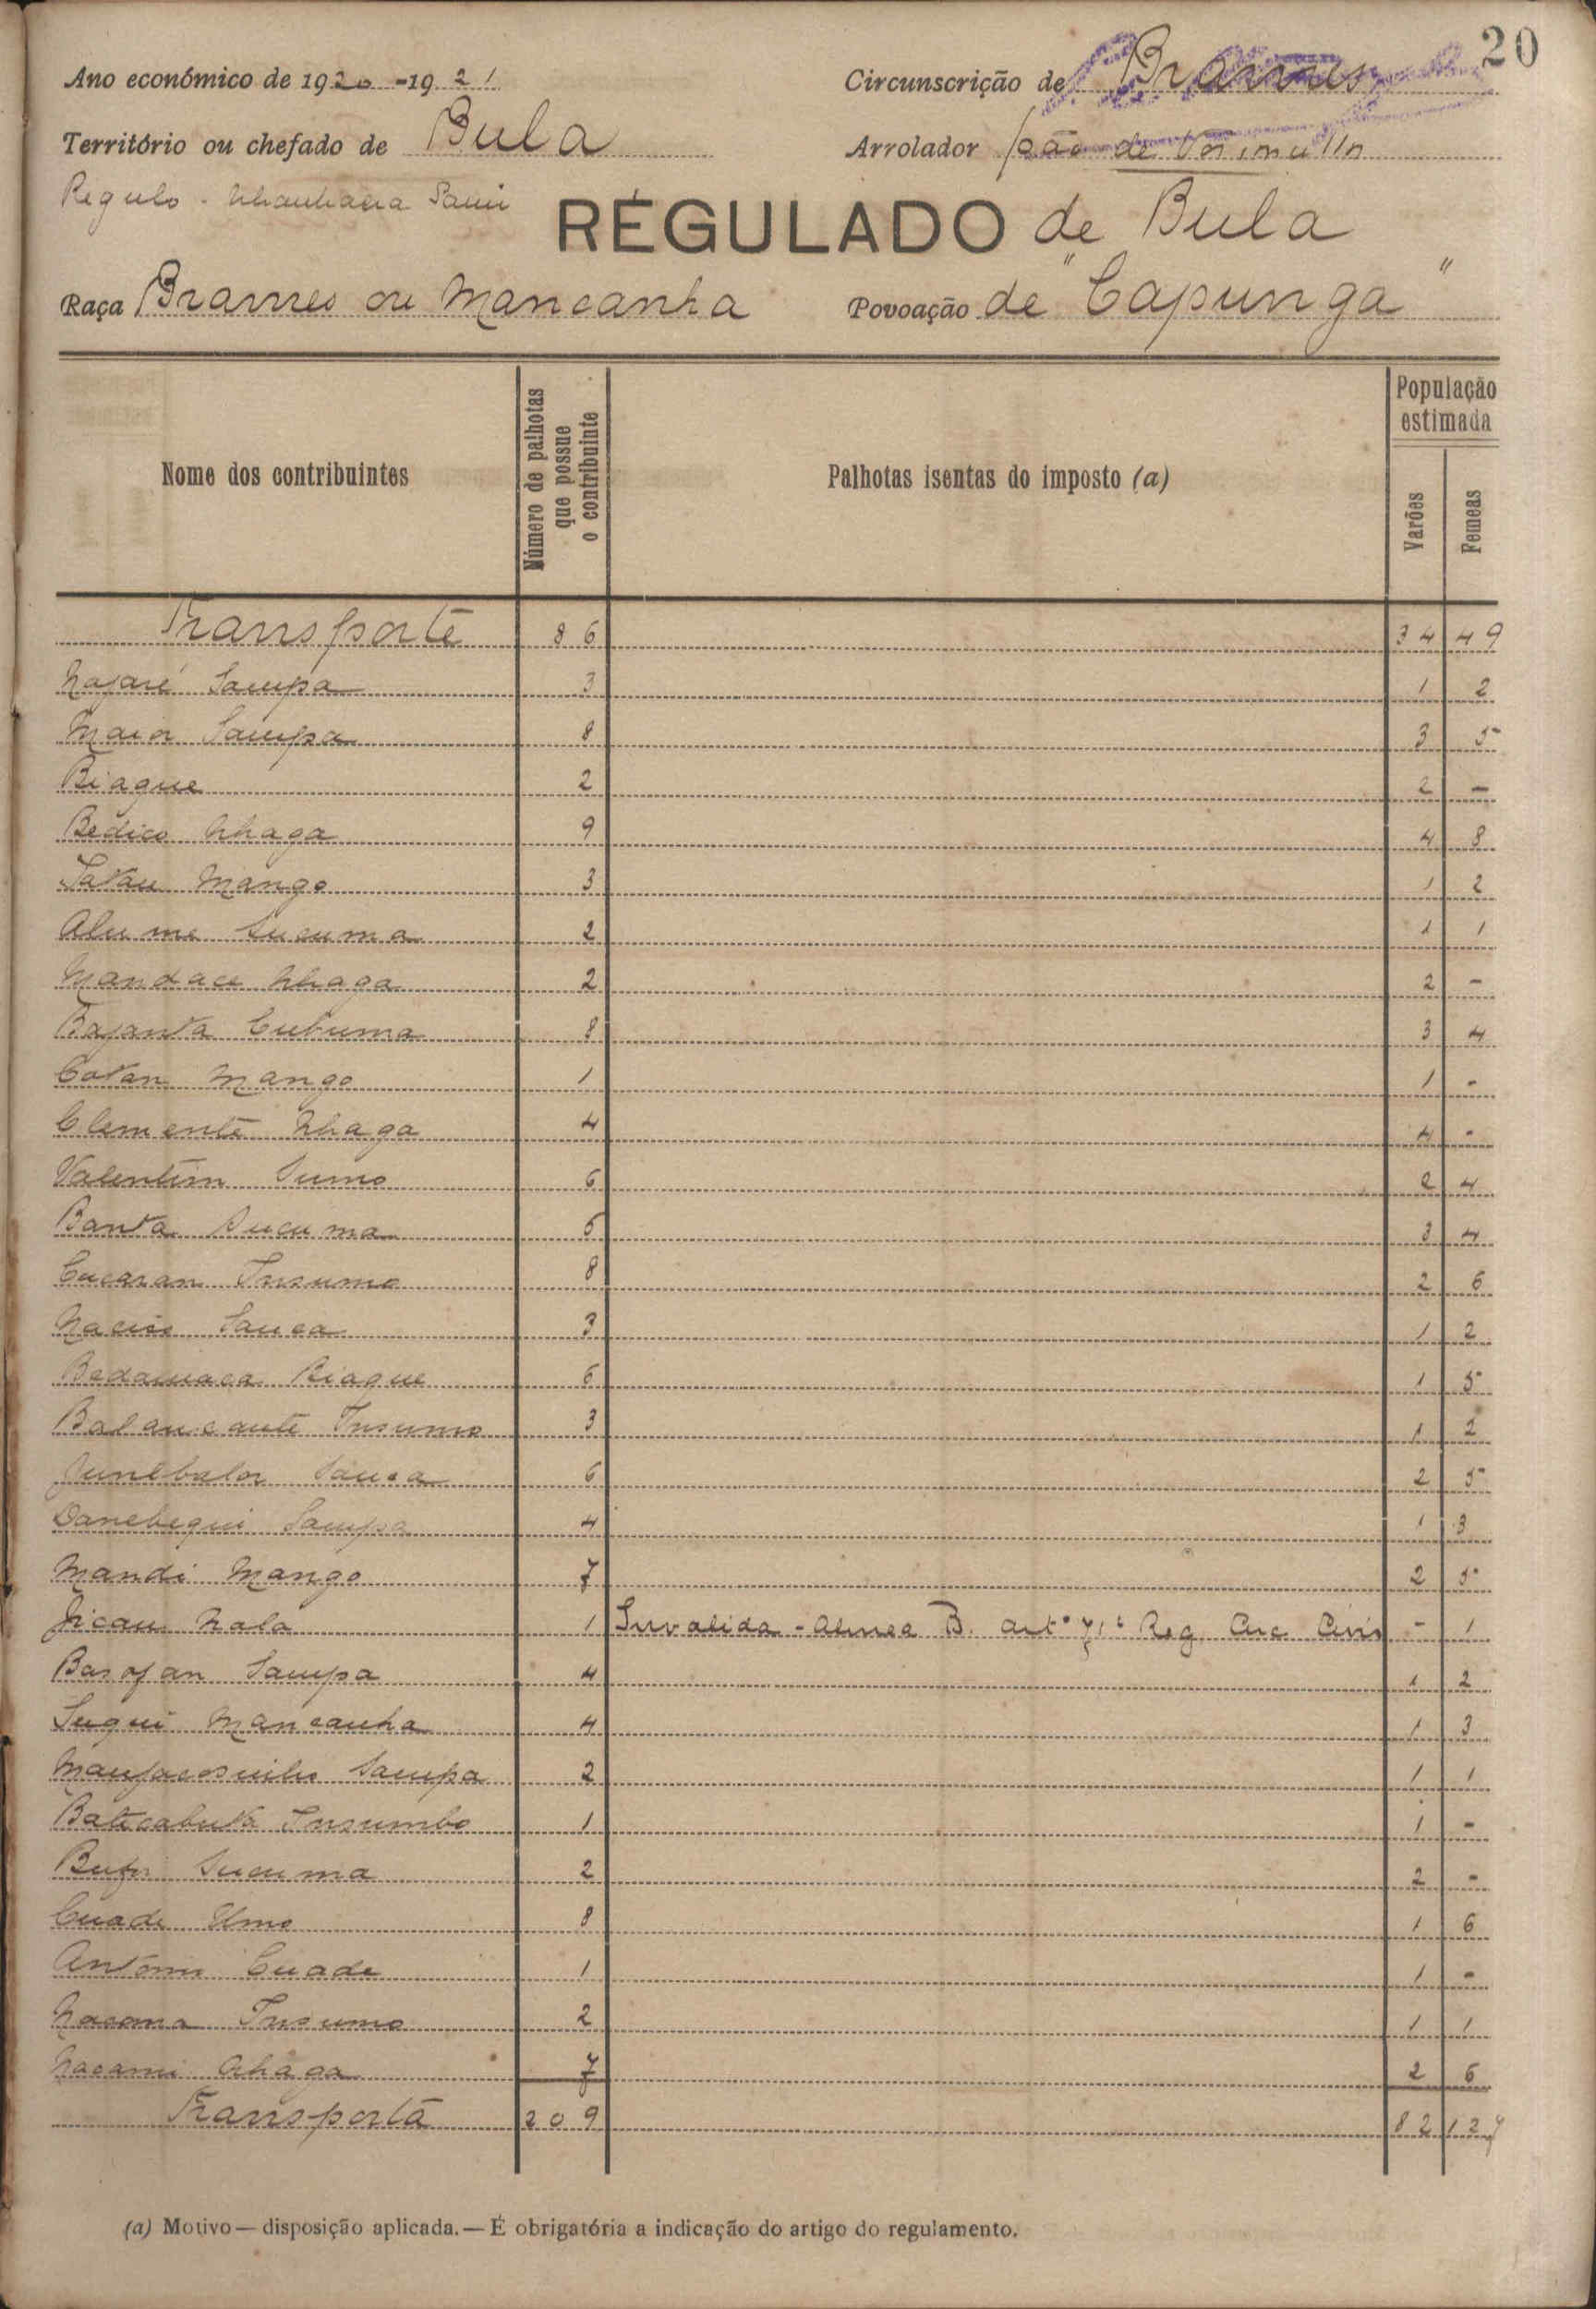 20
Ano económico de 1920-1921 Circunscrição de Brames
Território ou chefado de Bula Arrolador João de
Regulo - Nhanhacra Sami RÉGULADO de Bula
Raça Brames ou Mancanha Povoação de "Capunga"
Nome dos contribuintes Número de palhotas que possue o contribuinte Palhotas isentas do imposto (a) População estimada Varões Femeas
Transporte 86 34 49
Najaré Sampa 3 1 2
Maior Sampa 8 3 5
Biague 2 2 -
Bedico Nhaga 9 4 8
Tatau Mango 3 1 2
Alume Sucuma 2 1 1
Mandace Nhaga 2 2 -
Bajanta Cutuma 8 3 4
Cotan Mango 1 1 -
Clemente Nhaga 4 4 -
Valentim Sumo 6 2 4
Banta Sucuma 5 3 4
Cacaran Insumo 8 2 6
Naciso Sanca 3 1 2
Bedamaca Biague 6 1 5
Balancante Insumo 3 1 2
Sanca 6 2 5
Danebegui Sampa 4 1 3
Mandi Mango 7 2 5
Jicau Nala 1 Invalida - Alinea B. artº 71º Reg. Circ. Civis - 1
Barofan Sampa 4 1 2
Sugui Mancanha 4 1 3
Manjacosinho Sampa 2 1 1
Baticabuta Insumbo 1 1 -
Sucuma 2 2 -
Cuade Umo 8 1 6
Antonio Cuade 1 1 -
Nacoma Insumo 2 1 1
Nacami Nhaga 7 2 6
Transporta 209 82 127
(a) Motivo — disposição aplicada. — É obrigatória a indicação do artigo do regulamento.